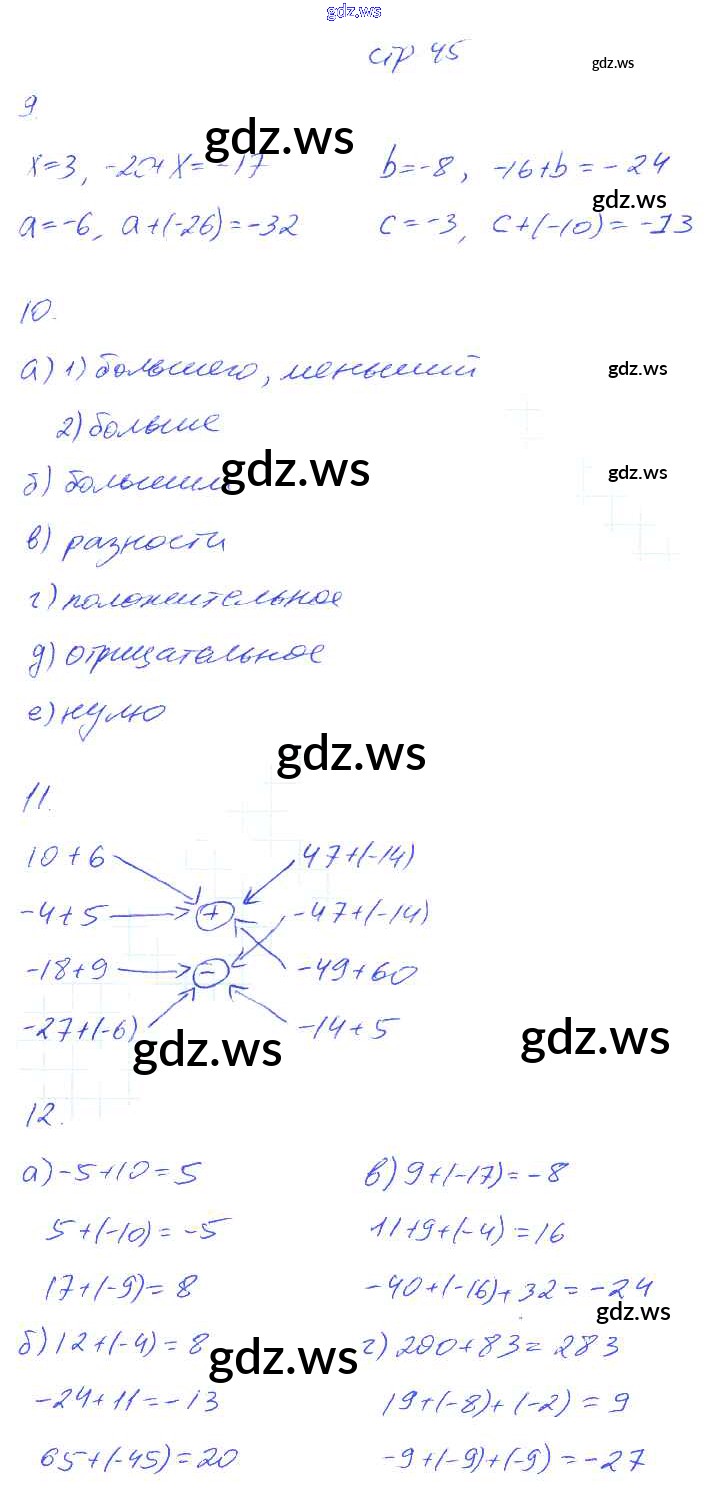 gdz.ws
стр 45
gdz.ws
9
gdz.ws
x=3, -20+x=-17 b=-8, -16+b=-24
gdz.ws
a=-6, a+(-26)=-32 c=-3, c+(-10)=-13
10.
а) 1) большего, меньший
gdz.ws
2) больше
б) большим
gdz.ws
gdz.ws
в) разности
г) положительное
д) отрицательное
е) нулю
gdz.ws
11.
10+6 47+(-14)
-4+5 + -47+(-14)
-18+9 - -49+60
-27+(-6) -14+5
gdz.ws
gdz.ws
12.
а) -5+10=5 в) 9+(-17)=-8
5+(-10)=-5 11+9+(-4)=16
17+(-9)=8 -40+(-16)+32=-24
gdz.ws
б) 12+(-4)=8 г) 200+83=283
gdz.ws
-24+11=-13 19+(-8)+(-2)=9
65+(-45)=20 -9+(-9)+(-9)=-27